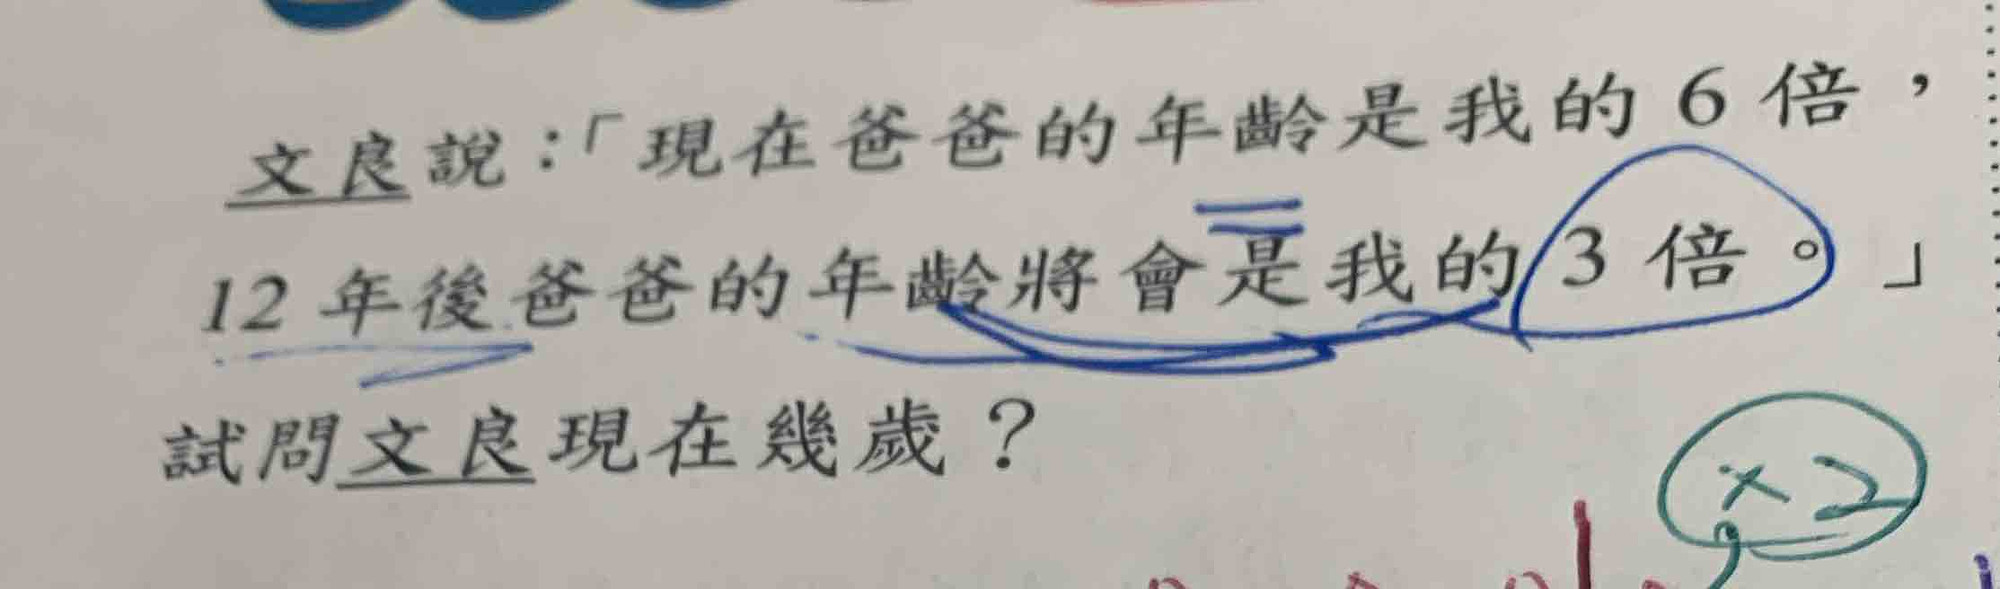 文良說：「現在爸爸的年齡是我的6倍，
12年後爸爸的年齡將會是我的3倍。」
試問文良現在幾歲？
×2